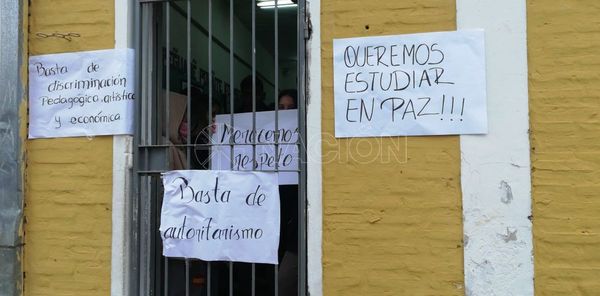 Basta de
discriminación
Pedagógica, artística
y económica
QUEREMOS
ESTUDIAR
EN PAZ!!!
Merecemos
respeto
Basta de
autoritarismo